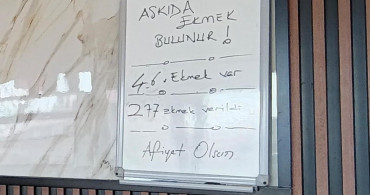 ASKIDA
EKMEK
BULUNUR!
4.6. Ekmek var
277 ekmek verildi
Afiyet Olsun